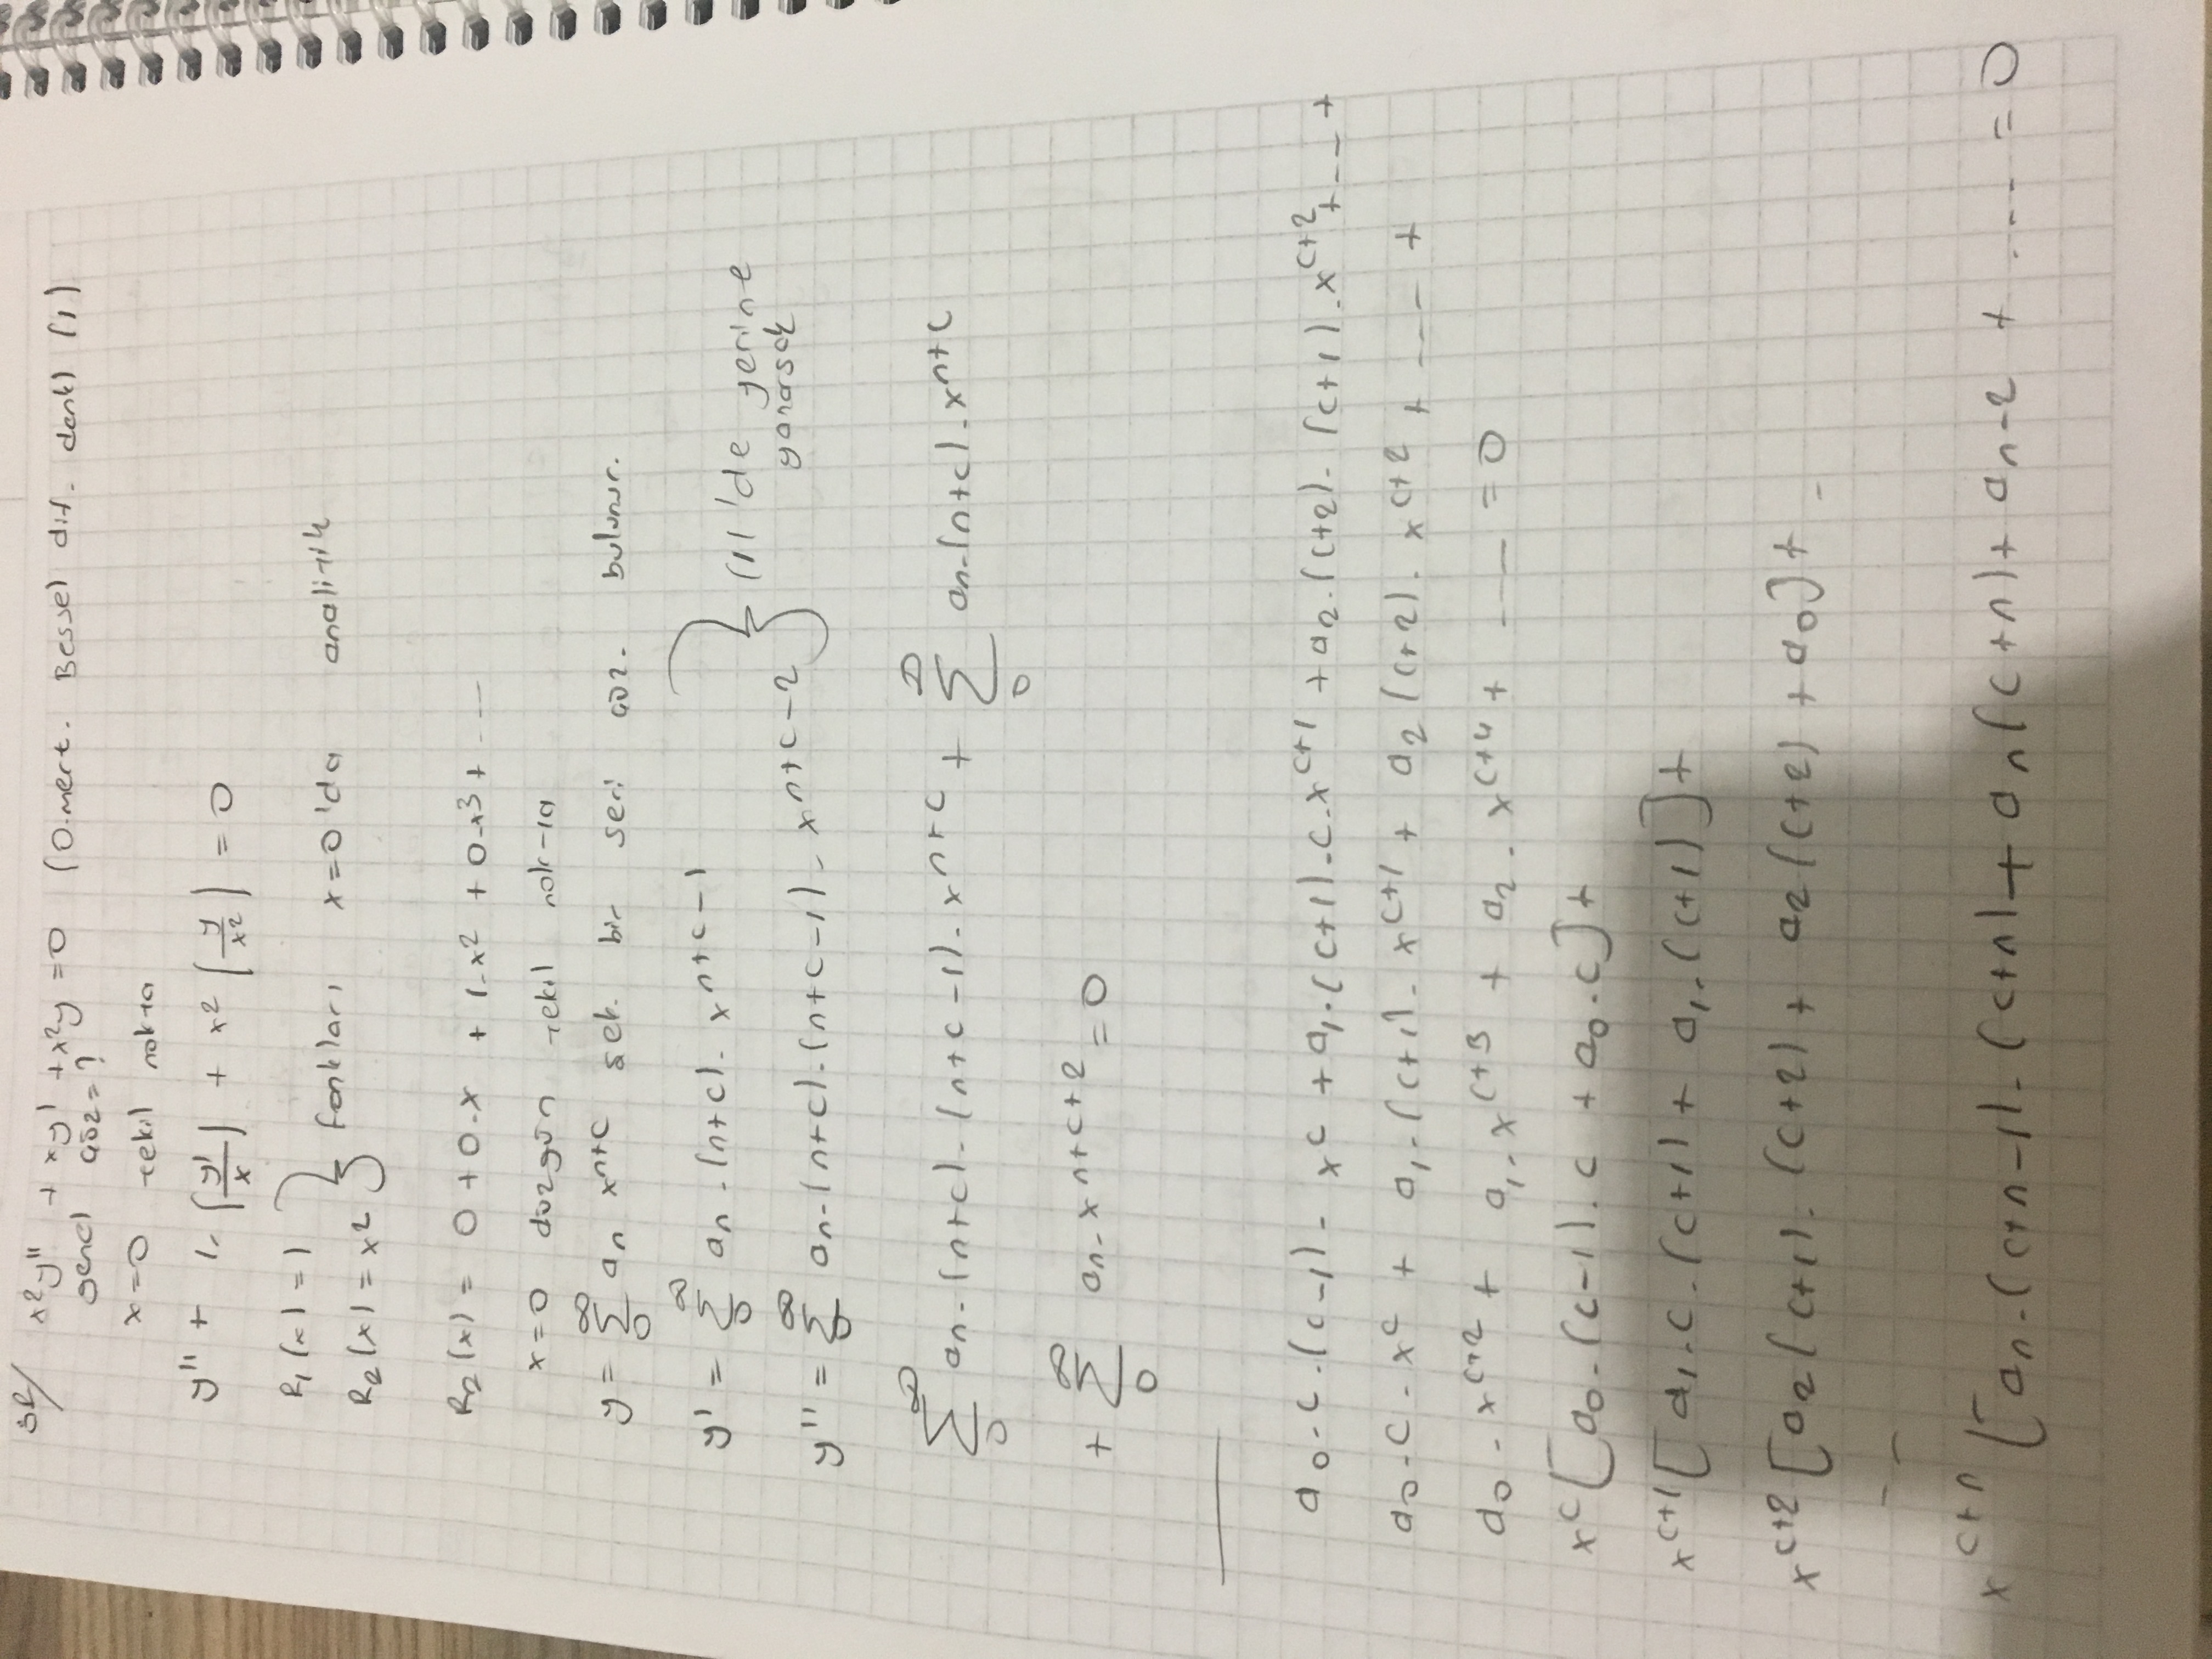 ÖR/ x²y'' + xy' + x²y = 0 (0.mert. Bessel dif. denk) (1)
genel çöz = ?
x=0 tekil nokta
y'' + 1. (y'/x) + x² (y/x²) = 0
R₁(x) = 1
R₂(x) = x² } fonkları x=0'da analitik
R₂(x) = 0 + 0.x + 1.x² + 0.x³ + ----
x=0 düzgün tekil nokta
y = ∑₀^∞ aₙ xⁿ⁺ᶜ şek. bir seri çöz. bulunur.
y' = ∑₀^∞ aₙ.(n+c).x^(n+c-1)
y'' = ∑₀^∞ aₙ.(n+c).(n+c-1).x^(n+c-2) } (1)'de yerine
yazarsak
∑₀^∞ aₙ.(n+c).(n+c-1).x^(n+c) + ∑₀^∞ aₙ.(n+c).x^(n+c)
+ ∑₀^∞ aₙ.x^(n+c+2) = 0
a₀.c.(c-1).x^c + a₁.(c+1).c.x^(c+1) + a₂.(c+2).(c+1).x^(c+2) + --- +
a₀.c.x^c + a₁.(c+1).x^(c+1) + a₂(c+2).x^(c+2) + ---- +
a₀.x^(c+2) + a₁.x^(c+3) + a₂.x^(c+4) + ---- = 0
x^c [a₀.(c-1).c + a₀.c] +
x^(c+1) [a₁.c.(c+1) + a₁.(c+1)] +
x^(c+2) [a₂(c+1).(c+2) + a₂(c+2) + a₀] + -
--
x^(c+n) [aₙ.(c+n-1).(c+n) + aₙ(c+n) + aₙ₋₂ + .--- = 0